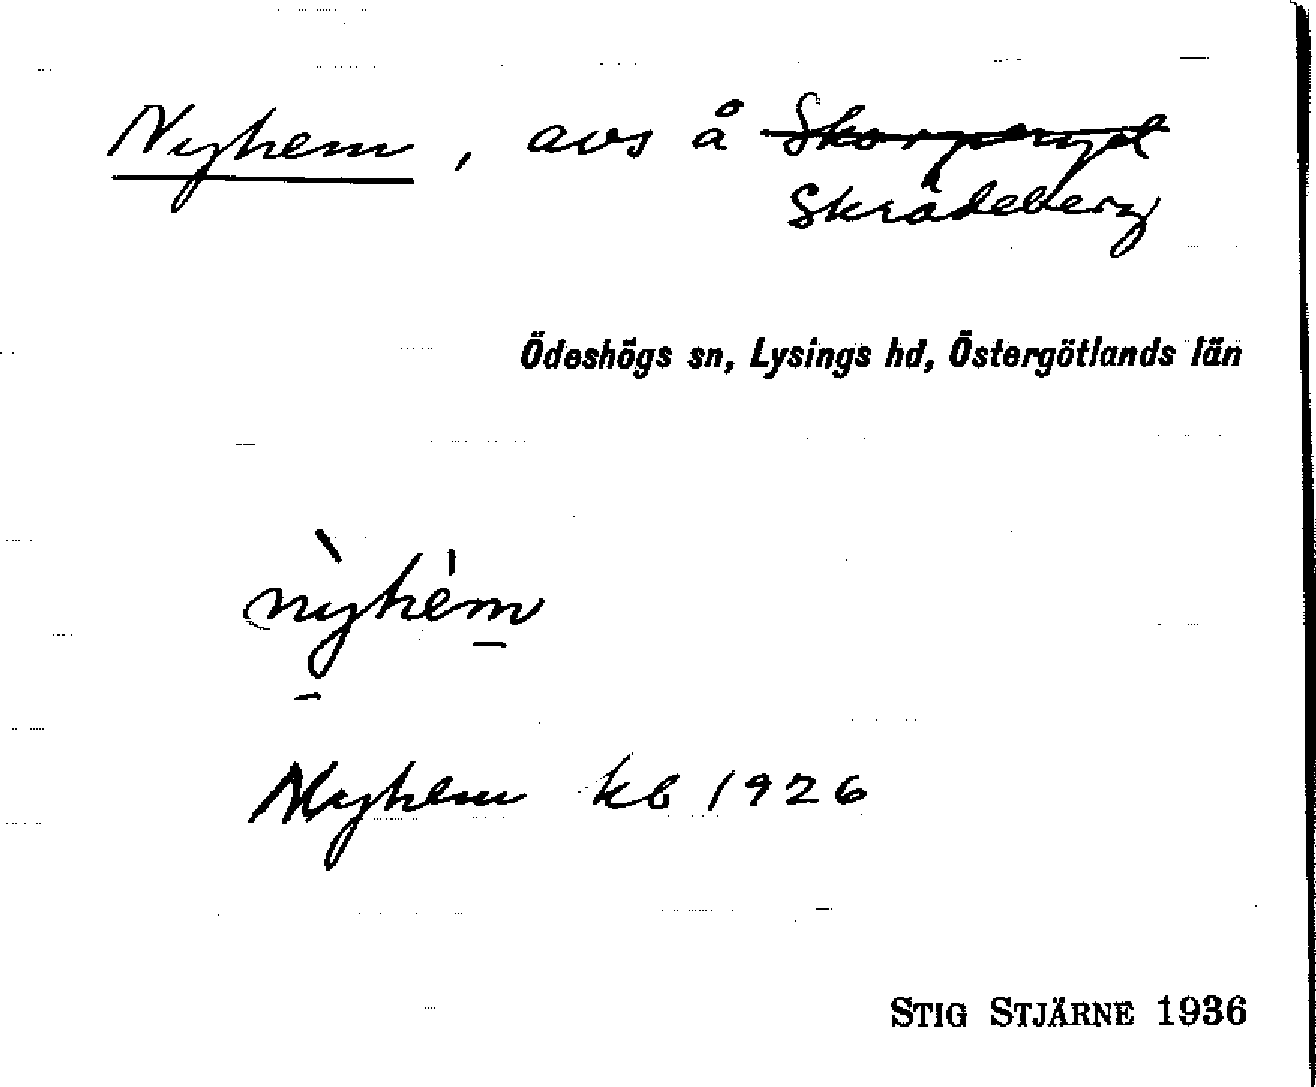 Nyhem, avs å ~~Skorperyd~~
Skrädeberg
Ödeshögs sn, Lysings hd, Östergötlands län
nỳhém
Nyhem kb 1926
STIG STJÄRNE 1936